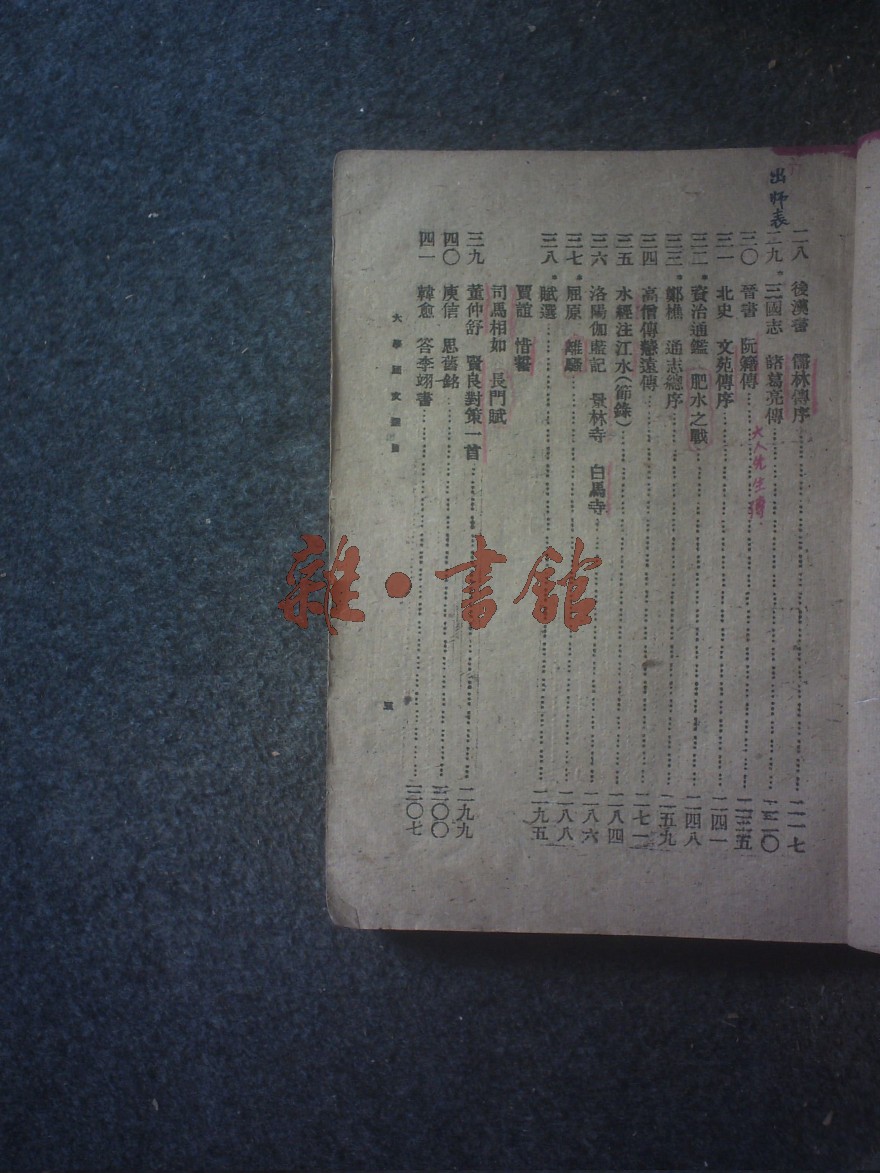 出師表
二八　後漢書　儒林傳序……二一七
二九　*三國志　諸葛亮傳……二二〇
三〇　晉書　阮籍傳……二三五
大人先生傳
三一　北史　文苑傳序……二四一
三二　*資治通鑑　肥水之戰……二四八
三三　*鄭樵　通志總序……二五九
三四　高僧傳慧遠傳……二七一
三五　水經注江水(節錄)……二八四
三六　洛陽伽藍記　景林寺　白馬寺……二八六
三七　*屈原　離騷……二八八
三八　*賦選……二九五
賈誼　惜誓
司馬相如　長門賦
三九　董仲舒　賢良對策一首……二九九
四〇　庾信　思舊銘……三〇〇
四一　韓愈　答李翊書……三〇七
大學國文選目
五
雜·書館